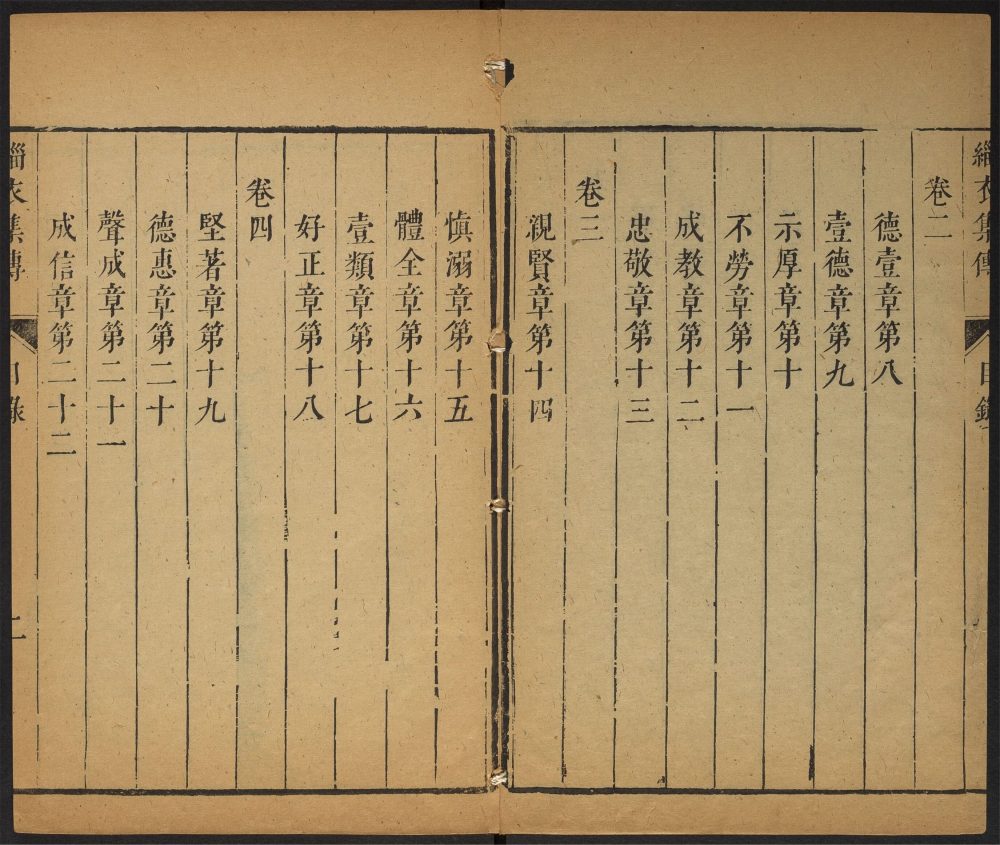 緇衣集傳 目錄
卷二
德壹章第八
壹德章第九
示厚章第十
不勞章第十一
成教章第十二
忠敬章第十三
卷三
親賢章第十四
慎溺章第十五
體全章第十六
壹類章第十七
好正章第十八
卷四
堅著章第十九
德惠章第二十
聲成章第二十一
成信章第二十二
緇衣集傳 目錄 二